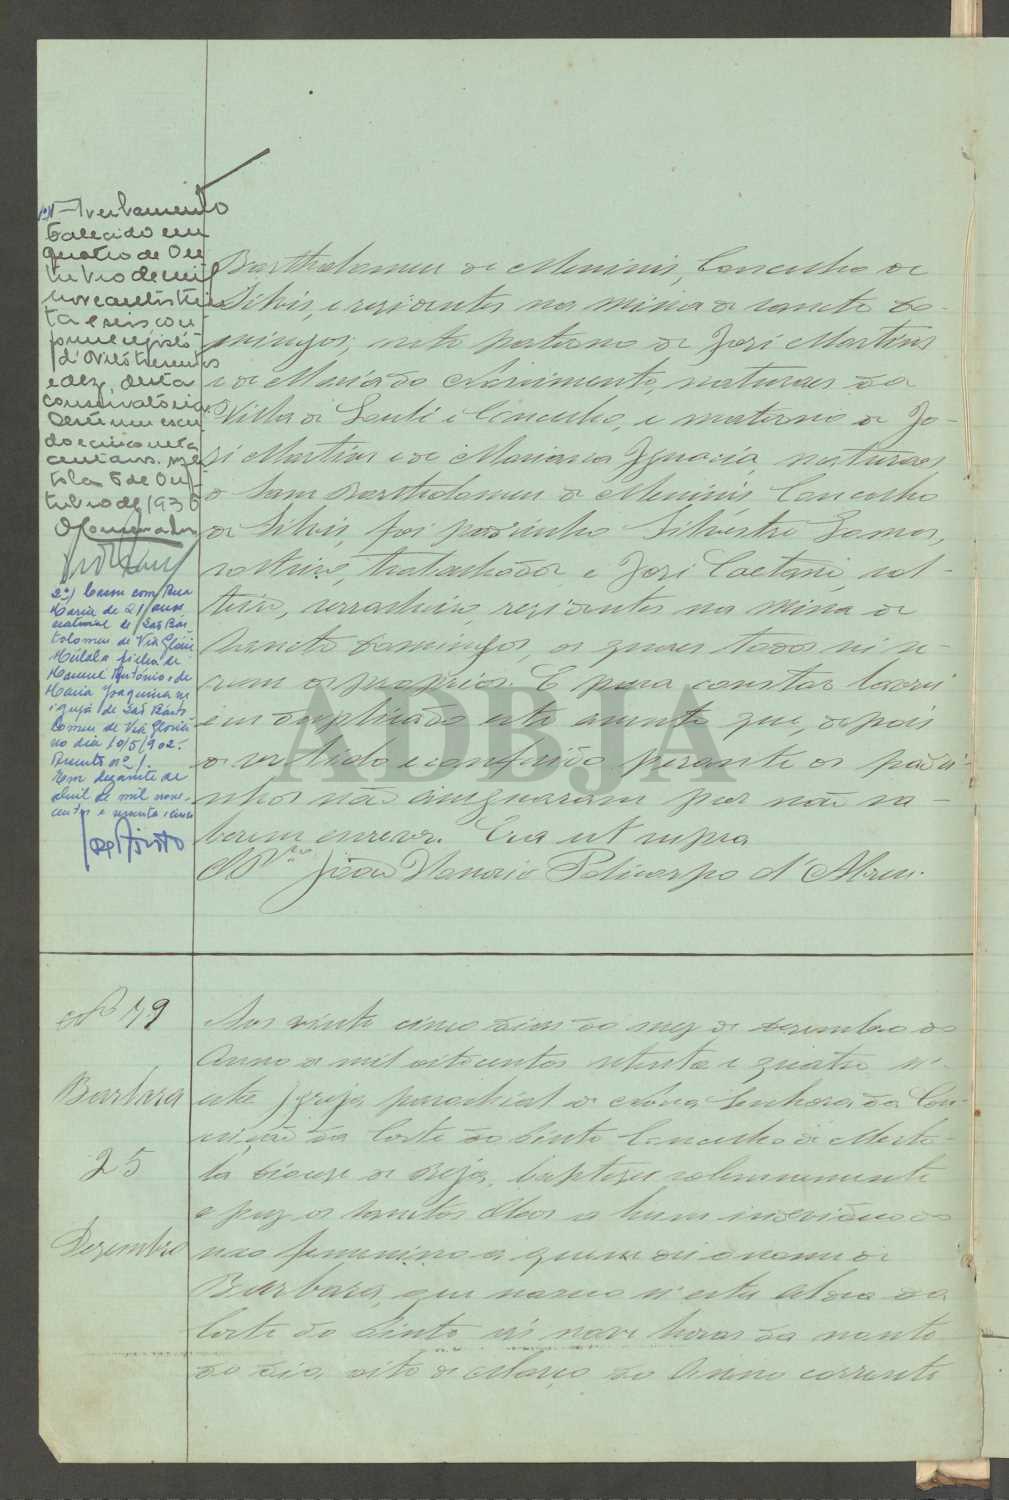 1º Averbamento
Falecido em
quatro de Ou
tubro de mil
novecentos trin
ta e seis con
forme registo
d'óbito trezentos
e dez, desta
conservatória
Deste um escu
do e cincoenta
centavos. Mér
tola 5 de Ou
tubro de 1936
O Conservador
2º) Casou com Ana
Maria de 21 anos
natural de São Bar
tolomeu de Via Glória
Mértola filha de
Manuel António e de
Maria Joaquina na
igreja de São Barto
lomeu de Via Glória
no dia 10/5/902.
Assento nº 1.
Em dezassete de
abril de mil nove
centos e sessenta e cinco
Bartholomeu de Meninis, Concelho de
Silves, e residentes na Mina de Sancto Do-
mingos; neto paterno de José Martins
e de Maria do Nascimento, naturaes da
Villa de Loulé e Concelho, e materno de Jo-
sé Martins e de Mariana Ignacia, naturaes
de Sam Bartholomeu de Meninis, Concelho
de Silves, foi padrinho Silvestre Gomes,
solteiro, trabalhador e José Caetano, sol-
teiro, serralheiro, residentes na Mina de
Sancto Domingos, os quaes todos sei se-
rem os proprios. E para constar lavrei
em duplicado este assento que, depois
de ser lido e conferido perante os padri-
nhos não assignaram por não sa-
berem escrever. Era ut supra
O P.ro João Honorio Policarpo d'Abreu.
Nº 79
Barbara
25
Dezembro
Aos vinte cinco dias do mez de Dezembro do
Anno de mil oitocentos setenta e quatro n'-
esta Igreja parochial de Nossa Senhora da Con-
ceição da Corte do Pinto Concelho de Merto-
la Diocese de Beja, baptizei solemnemente
e puz os Sanctos Oleos a hum individuo do
sexo femenino a quem dei o nome de
Barbara, que nasceu n'esta Aldea da
Corte do Pinto ás nove horas da noute
do dia oito de Março do Anno corrente
ADBJA